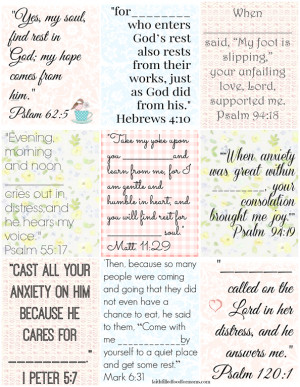 "Yes, my soul,
find rest in
God; my hope
comes from
him."
Pslam 62:5
"for________
who enters
God's rest
also rests
from their
works, just
as God did
from his."
Hebrews 4:10
When
__________
said, "My foot is
slipping,"
your unfailing
love, Lord,
supported me.
Psalm 94:18
"Evening,
morning
and noon
__________
cries out in
distress,and
he hears my
voice."
Psalm 55:17
"Take my yoke upon
you__________and
learn from me, for I
am gentle and
humble in heart, and
you will find rest for
__________soul."
Matt 11:29
"When anxiety
was great within
__________, your
consolation
brought me joy."
Psalm 94:19
"CAST ALL YOUR
ANXIETY ON HIM
BECAUSE HE
CARES FOR
__________"
I PETER 5:7
Then, because so many
people were coming
and going that they did
not even have a
chance to eat, he said
to them, "Come with
me __________by
yourself to a quiet place
and get some rest."
Mark 6:31
"__________
called on the
Lord in her
distress, and he
answers me."
Psalm 120:1